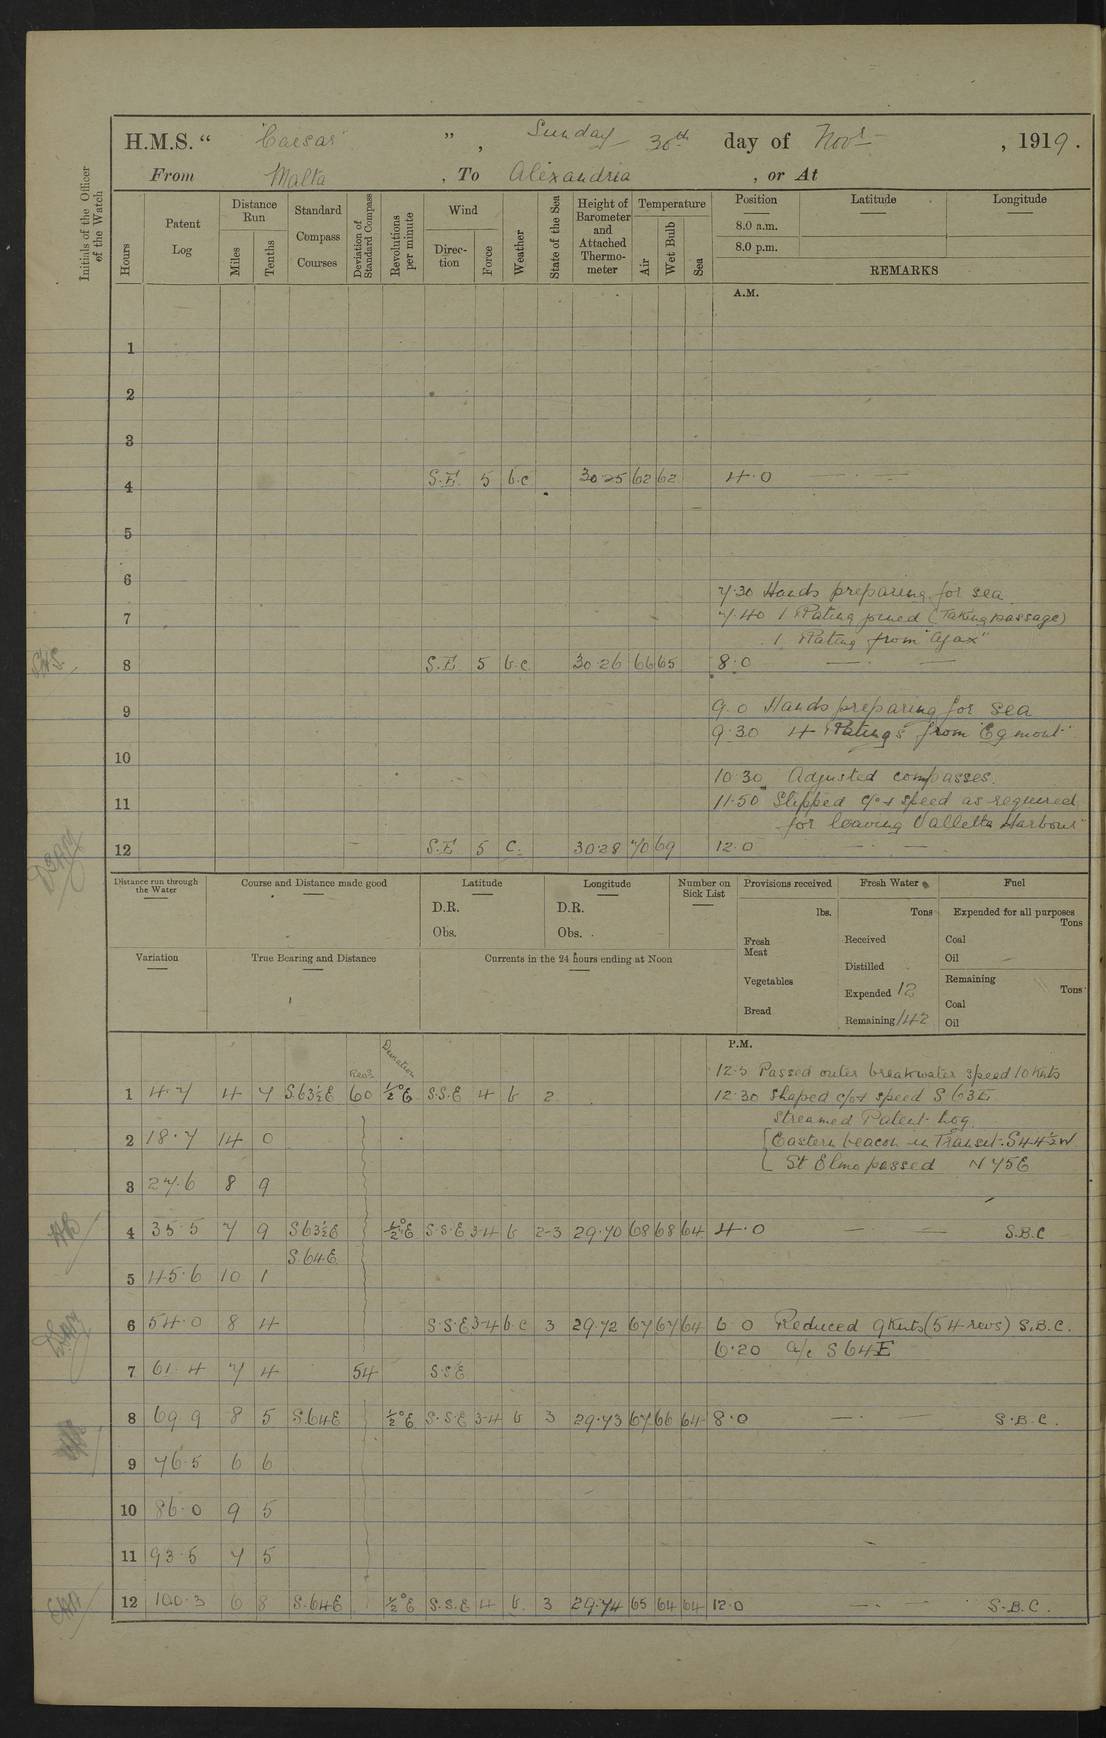 H.M.S. " Caesar " , Sunday 30th day of Novr , 1919 .
From Malta , To Alexandria , or At
Initials of the Officer of the Watch
Hours
Patent Log
Distance Run
Miles
Tenths
Standard Compass Courses
Deviation of Standard Compass
Revolutions per minute
Wind
Direction
Force
Weather
State of the Sea
Height of Barometer and Attached Thermometer
Temperature
Air
Wet Bulb
Sea
Position Latitude Longitude
8.0 a.m.
8.0 p.m.
REMARKS
A.M.
1
2
3
4 S.E. 5 b.c 30.25 62 62 4.0
5
6
7.30 Hands preparing for sea
7 7.40 1 Rating joined (Taking passage)
1 Rating from "Ajax"
8 S.E 5 b.c. 30.26 66 65 8.0
9 9.0 Hands preparing for sea
9.30 4 Ratings from "Egmont"
10
10.30 Adjusted compasses.
11 11.50 Slipped c/o & speed as required
for leaving Valletta Harbour
12 S.E 5 C. 30.28 70 69 12.0
Distance run through the Water
Course and Distance made good
Latitude
D.R.
Obs.
Longitude
D.R.
Obs.
Number on Sick List
Provisions received
lbs.
Fresh Meat
Vegetables
Bread
Fresh Water
Tons
Received
Distilled
Expended 12
Remaining 142
Fuel
Expended for all purposes
Tons
Coal
Oil
Remaining
Tons
Coal
Oil
Variation
True Bearing and Distance
Currents in the 24 hours ending at Noon
P.M.
Revs Deviation
12.5 Passed outer breakwater speed 10 Knts
1 4.7 4 7 S.63½E 60 ½°E S.S.E 4 b 2 12.30 Shaped c/o & speed S 63 E
Streamed Patent Log
2 18.7 14 0 Eastern beacon in Transit S 44½ W
St Elmo passed N 75 E
3 27.6 8 9
4 35.5 7 9 S63½E ½°E S.S.E 3-4 b 2-3 29.70 68 68 64 4.0 S.B.C
S.64.E
5 45.6 10 1
6 54.0 8 4 S.S.E 3-4 b.c 3 29.72 67 67 64 6 0 Reduced 9 Knts (54 revs) S.B.C.
6.20 a/c S 64 E
7 61.4 7 4 54 S S E
8 69.9 8 5 S.64E ½°E S.S.E 3-4 b 3 29.73 67 66 64 8.0 S.B.C.
9 76.5 6 6
10 86.0 9 5
11 93.5 7 5
12 100.3 6 8 S.64E ½°E S.S.E 4 b. 3 29.74 65 64 64 12.0 S.B.C.